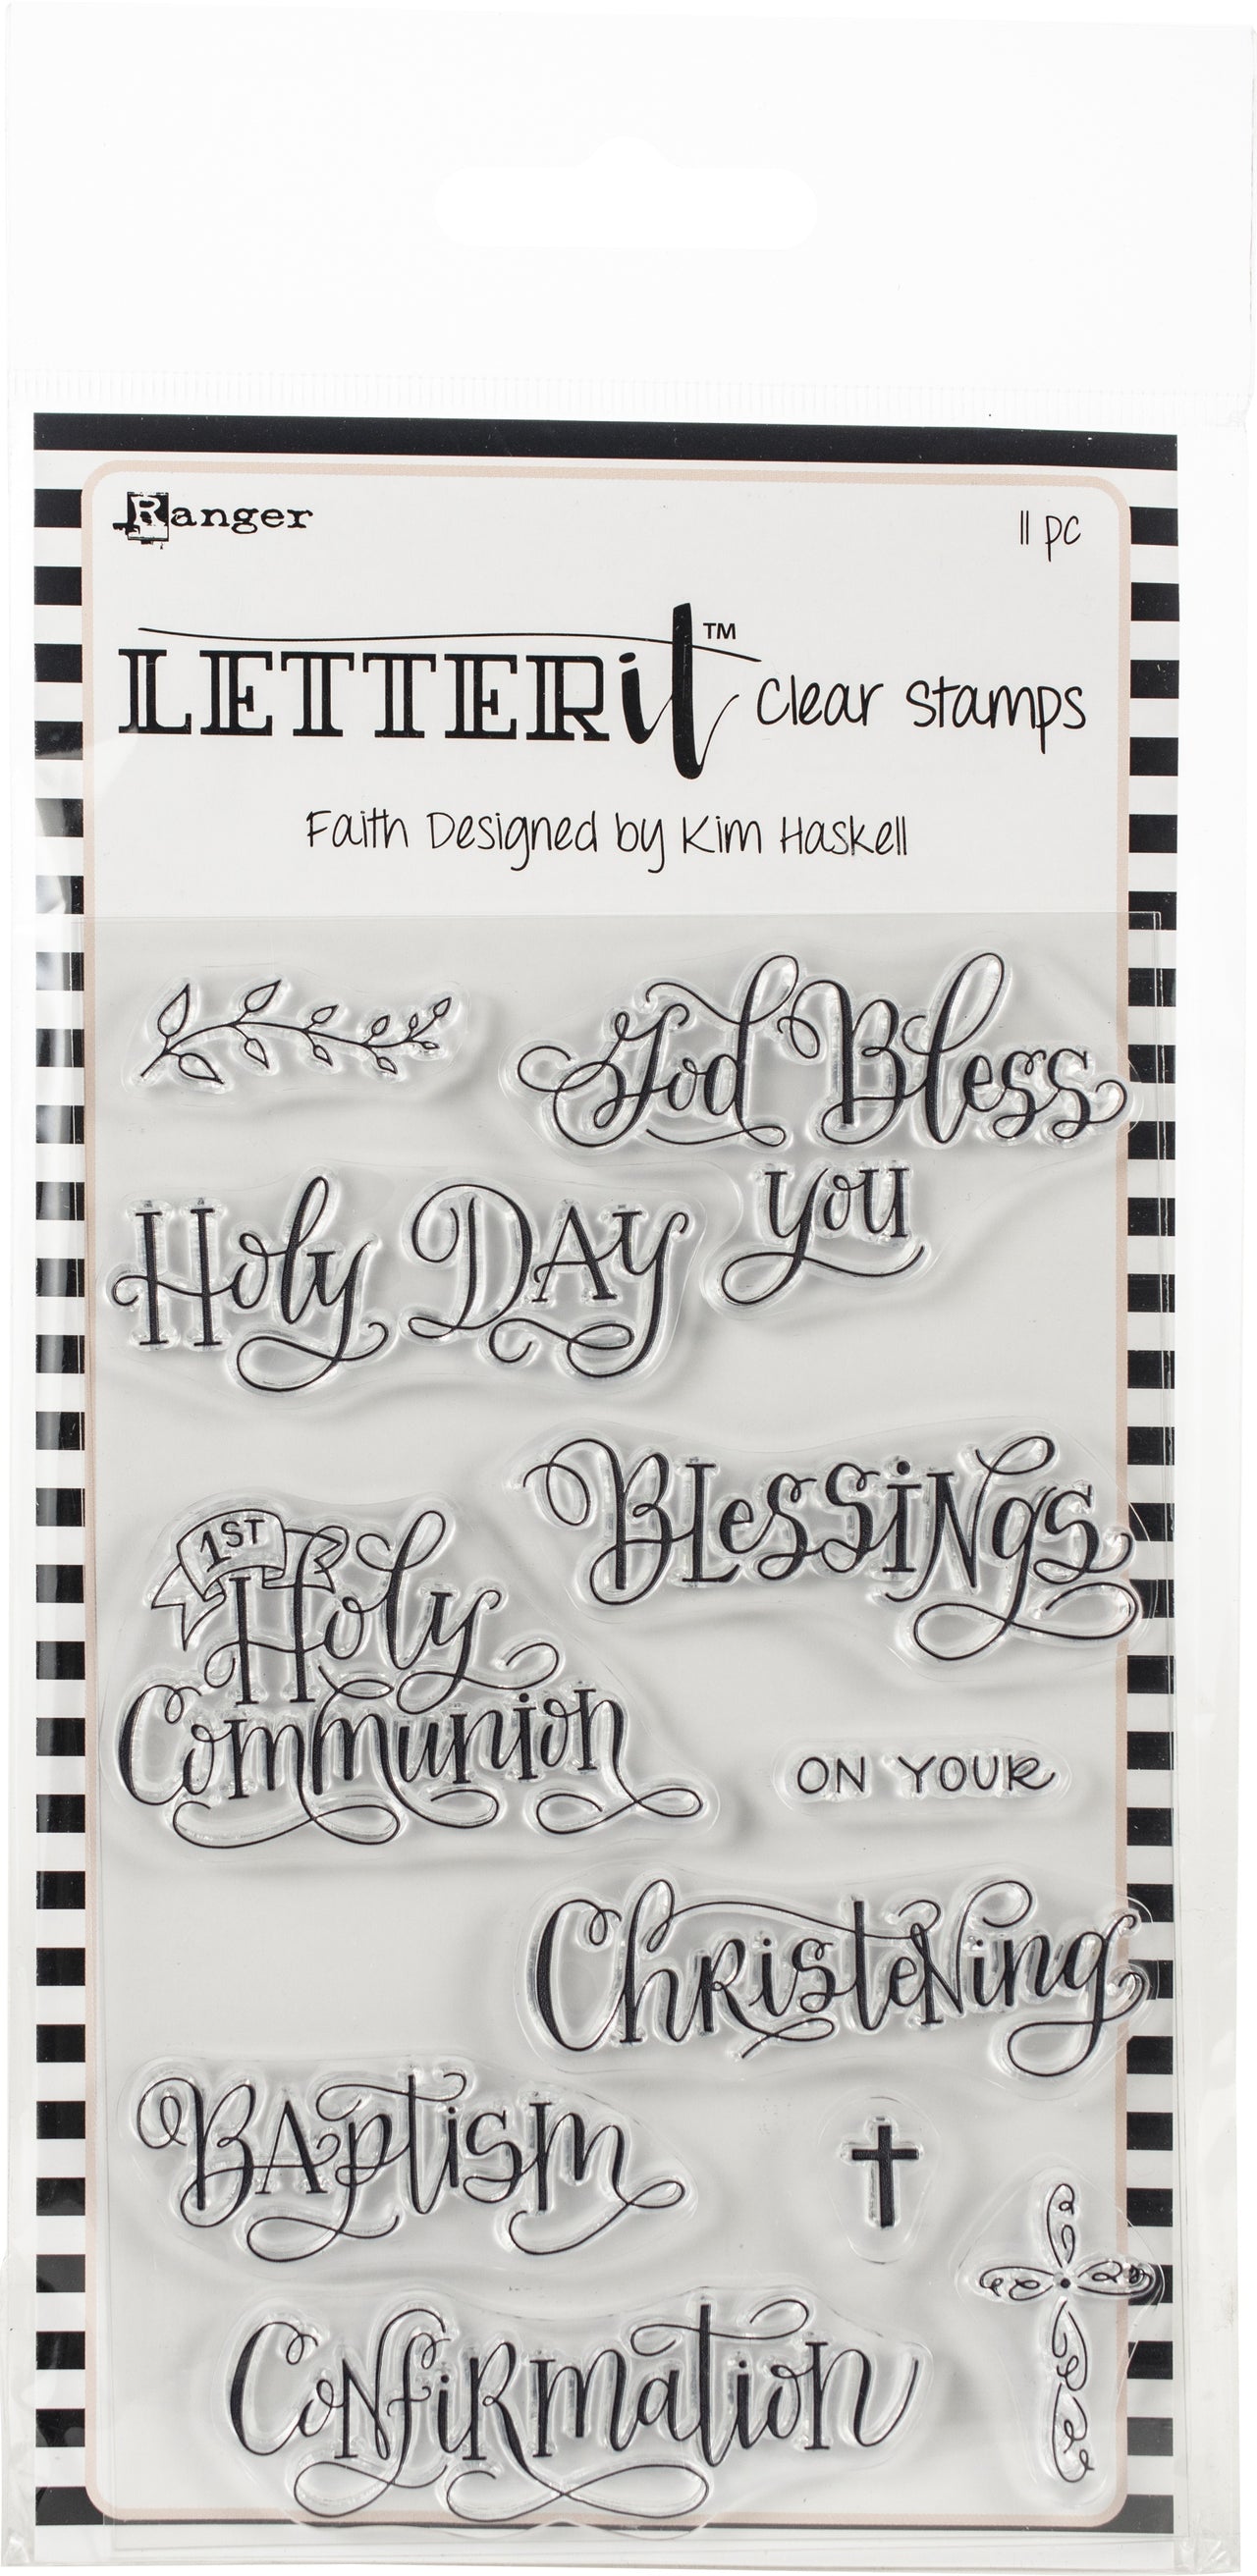 Ranger
11 pc
LETTERit™ Clear Stamps
Faith Designed by Kim Haskell
God Bless
you
Holy DAy
BlessiNgs
1ST
Holy
Communion
ON YOUR
ChRisteNing
BAptism
CoNfiRmation